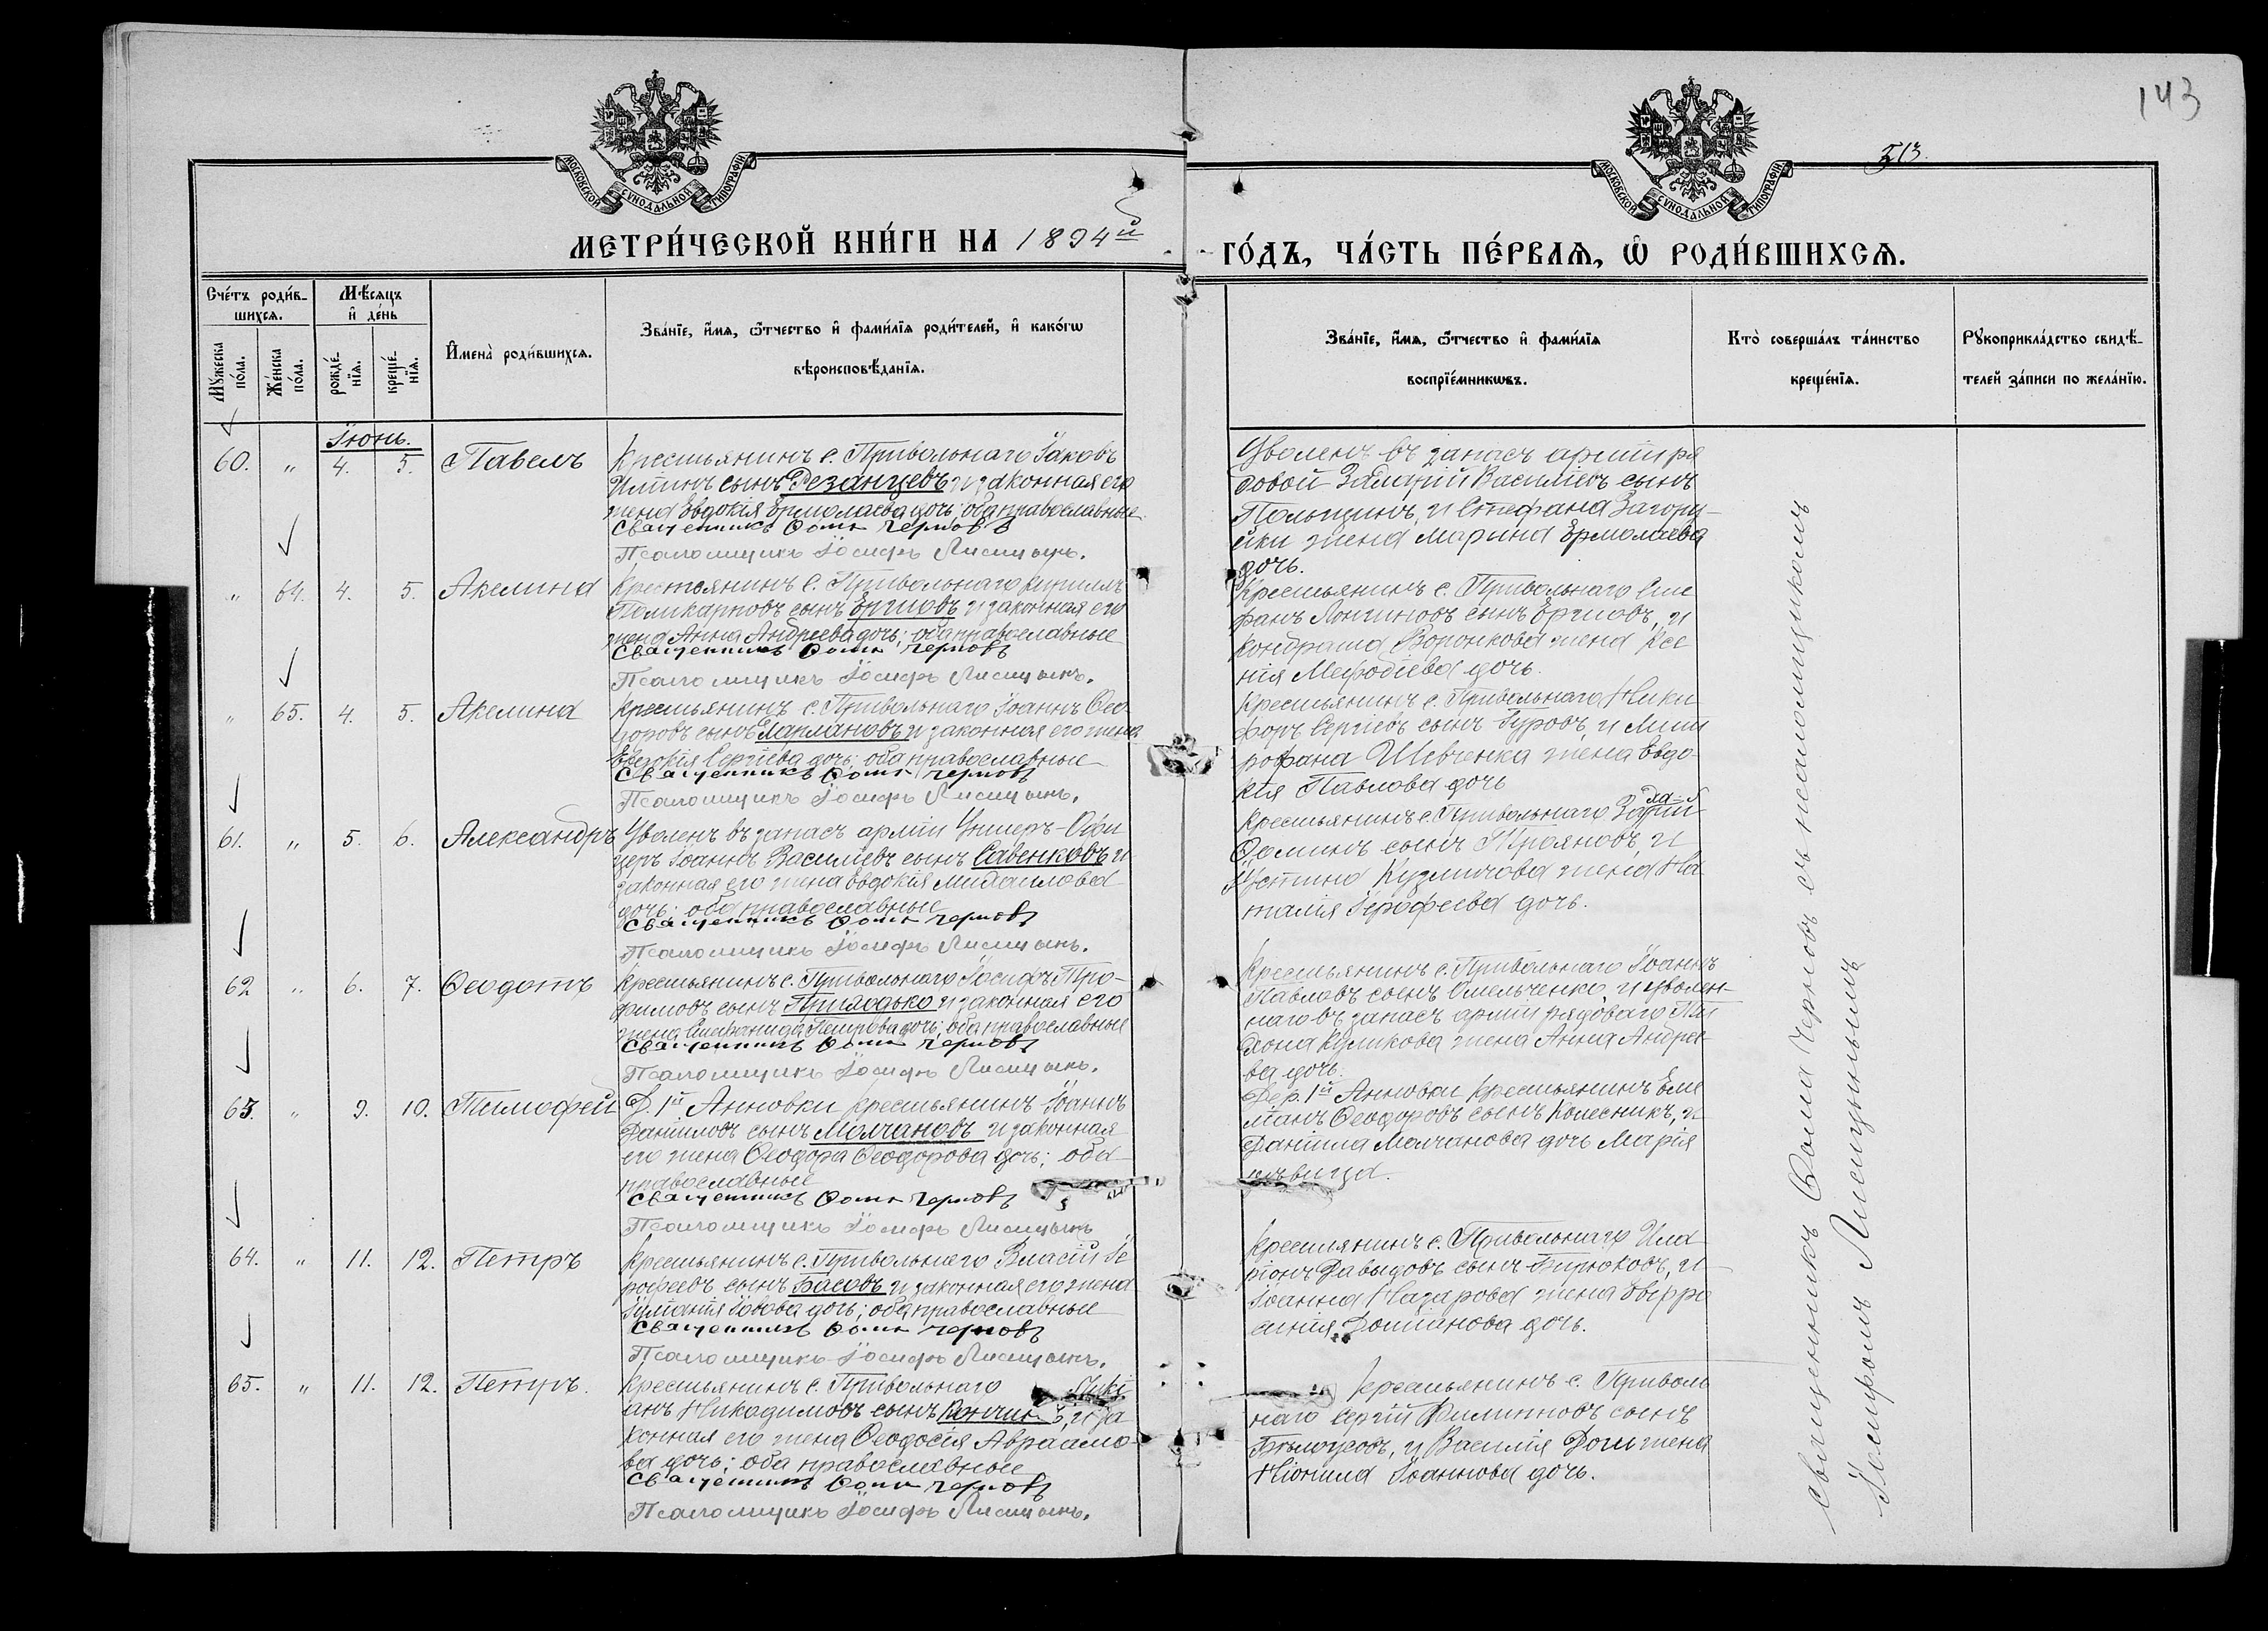 143
МОСКОВСКОЙ СѴНОДАЛЬНОЙ ТИПОГРАФІИ
МОСКОВСКОЙ СѴНОДАЛЬНОЙ ТИПОГРАФІИ
МЕТРИ́ЧЕСКОЙ КНИ́ГИ НА 1894й
ГО́ДЪ, ЧА́СТЬ ПЕ́РВАѦ, Ѽ РОДИ́ВШИХСѦ.
Сче́тъ роди́в-
шихсѧ.
Мꙋ́жеска по́ла.
Же́нска по́ла.
Мѣ́сѧцъ
и҆ де́нь
рожде́-
нїѧ.
креще́-
нїѧ.
И҆мена̀ роди́вшихсѧ.
Зва́нїе, и҆́мѧ, ѻ҆́тчество и҆ фами́лїѧ роди́телей, и҆ како́гѡ
вѣроисповѣ́данїѧ.
Зва́нїе, и҆́мѧ, ѻ҆́тчество и҆ фами́лїѧ
воспрїе́мникѡвъ.
Кто̀ соверша́лъ та́инство
креще́нїѧ.
Рꙋкоприкла́дство свидѣ́-
телей за́писи по жела́нїю.
Іюнь.
60. „ 4. 5. Павелъ
Крестьянинъ с. Привольнаго Іаковъ
Илтинъ сынъ Резанцевъ и законная его
жена Евдокія Ермолаева дочь; оба православные
Священникъ Ѳома Черновъ
Псаломщикъ Іосифъ Лисицынъ.
Уволенъ въ запасъ арміи ря
довой Василіевъ сынъ
и Стефана Загору-
йки жена Марина Ермолаева
дочь.
„ 64. 4. 5. Акелина
Крестьянинъ с. Привольнаго Кириллъ
Поликарповъ сынъ Ергиовъ и законная его
жена Анна Андреева дочь; оба православные
Священникъ Ѳома Черновъ
Псаломщикъ Іосифъ Лисицынъ.
Крестьянинъ с. Привольнаго Сте
фанъ Лонгиновъ сынъ Ергиовъ, и
Кондрата Воронкова жена Ксе
нія Меѳодіева дочь.
„ 65. 4. 5. Акелина
Крестьянинъ с. Привольнаго Іоаннъ Ѳео-
доровъ сынъ и законная его жена
Евдокія Сергіева дочь; оба православные
Священникъ Ѳома Черновъ
Псаломщикъ Іосифъ Лисицынъ.
Крестьянинъ с. Привольнаго Ники
форъ Сергіевъ сынъ Гуровъ, и Мит
рофана Шевченка жена Евдо-
кія Павлова дочь
61. „ 5. 6. Александръ
Уволенъ въ запасъ арміи Унтеръ-Офи
церъ Іоаннъ Василіевъ сынъ Савенковъ и
законная его жена Евдокія Михаилова
дочь; оба православные
Священникъ Ѳома Черновъ
Псаломщикъ Іосифъ Лисицынъ.
Крестьянинъ с. Привольнаго
Ѳоминъ сынъ Трояновъ, и
Устина Кузмичова жена На
талія Іероѳеева дочь.
62 „ 6. 7. Ѳеодотъ
Крестьянинъ с. Привольнаго Іосифъ Тро-
фимовъ сынъ Приходько и законная его
жена Стефанида Петрова дочь; оба православные
Священникъ Ѳома Черновъ
Псаломщикъ Іосифъ Лисицынъ.
Крестьянинъ с. Привольнаго Іоаннъ
Павловъ сынъ Омельченко, и уволен-
наго въ запасъ арміи рядоваго
Куликова жена Анна Андрее-
ва дочь.
63. „ 9. 10. Тимоѳей
Д. 1й Анновки крестьянинъ Іоаннъ
Даніиловъ сынъ Молчановъ и законная
его жена Ѳеодора Ѳеодорова дочь; оба
православные
Священникъ Ѳома Черновъ
Псаломщикъ Іосифъ Лисицынъ
Дер. 1й Анновки крестьянинъ Еме
ліанъ Ѳеодоровъ сынъ Колесникъ, и
Даніила Молчанова дочь Марія
дѣвица.
64. „ 11. 12. Петръ
Крестьянинъ с. Привольнаго Власій Іе
роѳеевъ сынъ Басовъ и законная его жена
Іуліанія Іовова дочь; оба православные
Священникъ Ѳома Черновъ
Псаломщикъ Іосифъ Лисицынъ.
Крестьянинъ с. Привольнаго Ила
ріонъ Давыдовъ сынъ Бирюковъ, и
Іоанна Назарова жена Евфро
синія дочь.
65. „ 11. 12. Петръ.
Крестьянинъ с. Привольнаго Лукі
анъ Никодимовъ сынъ и за
конная его жена Ѳеодосія Авраамо-
ва дочь; оба православные
Священникъ Ѳома Черновъ
Псаломщикъ Іосифъ Лисицынъ.
Крестьянинъ с. Приволь
наго Сергій Филипповъ сынъ
Бѣлоусовъ, и Василія жена
Неонила Іоаннова дочь.
Священникъ Ѳома Черновъ съ псаломщикомъ
Іосифомъ Лисицынымъ